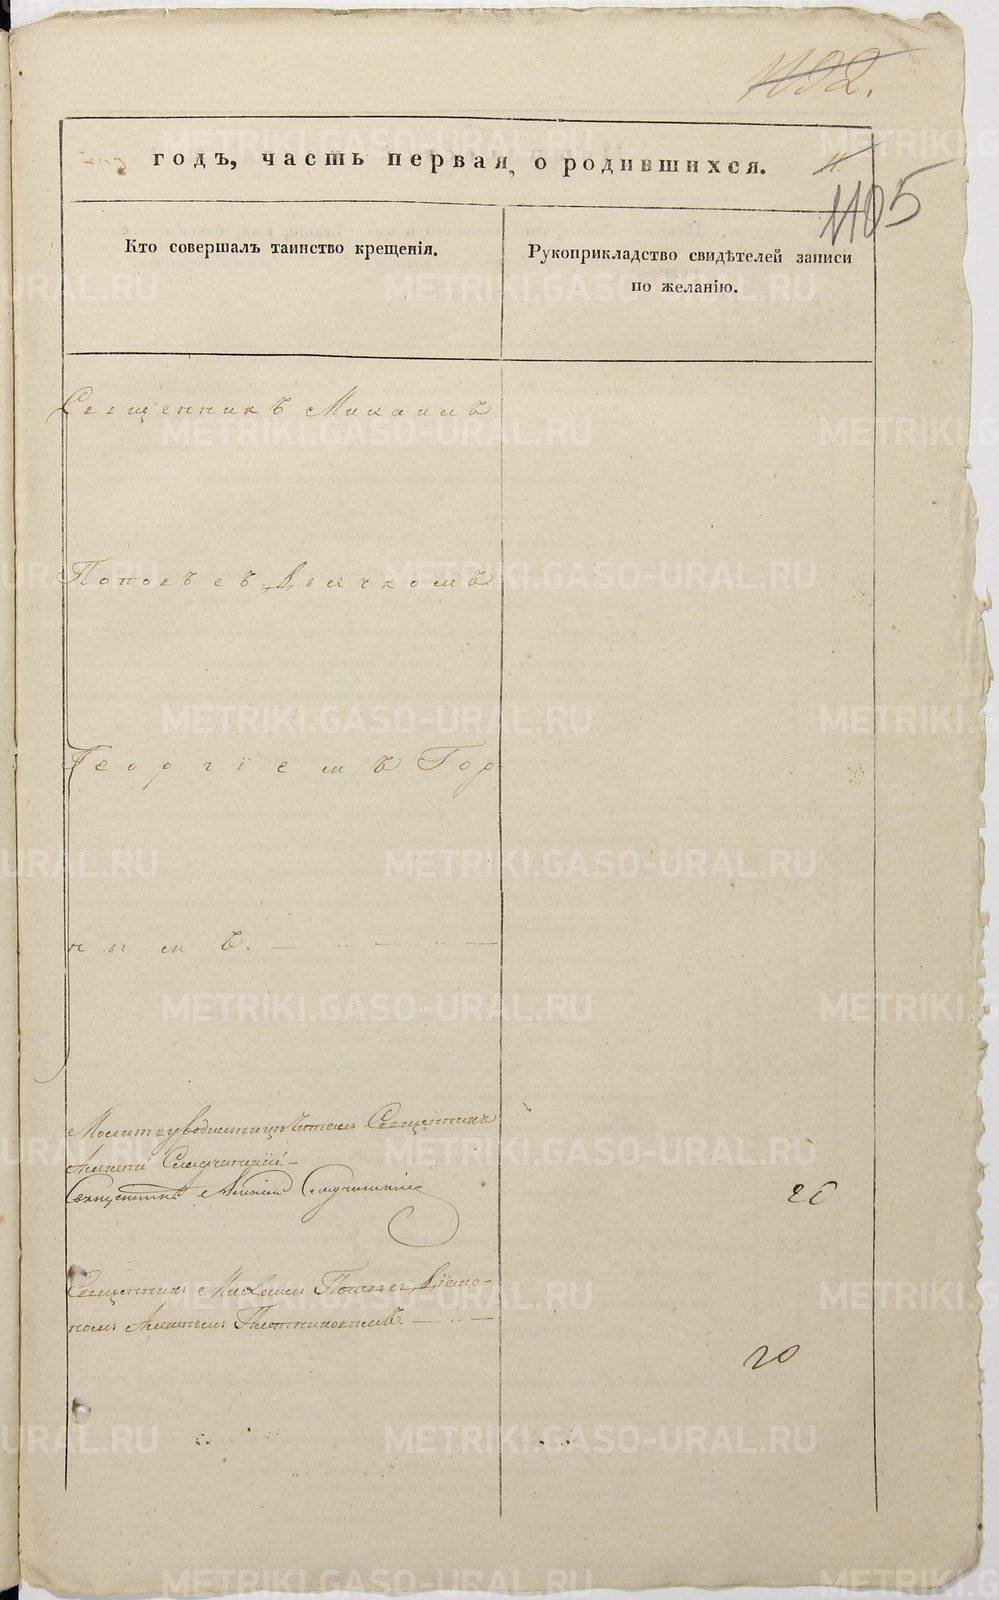 1092.
годъ, часть первая, о родившихся.
1105
Кто совершалъ таинство крещенія.
Рукоприкладство свидѣтелей записи
по желанію.
Священникъ Михаилъ
Поповъ съ Дьячкомъ
Георгіемъ Гор
нымъ.
Молитву Священникъ
Алексій
Священникъ Алексій
20
Священникъ Михаилъ Поповъ с Діако-
номъ Алексѣемъ Плотниковымъ.
20
METRIKI.GASO-URAL.RU